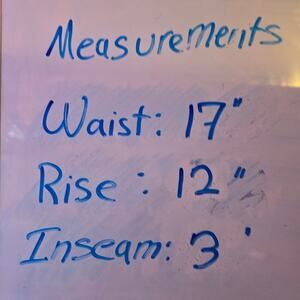 Measurements
Waist: 17"
Rise: 12"
Inseam: 3'